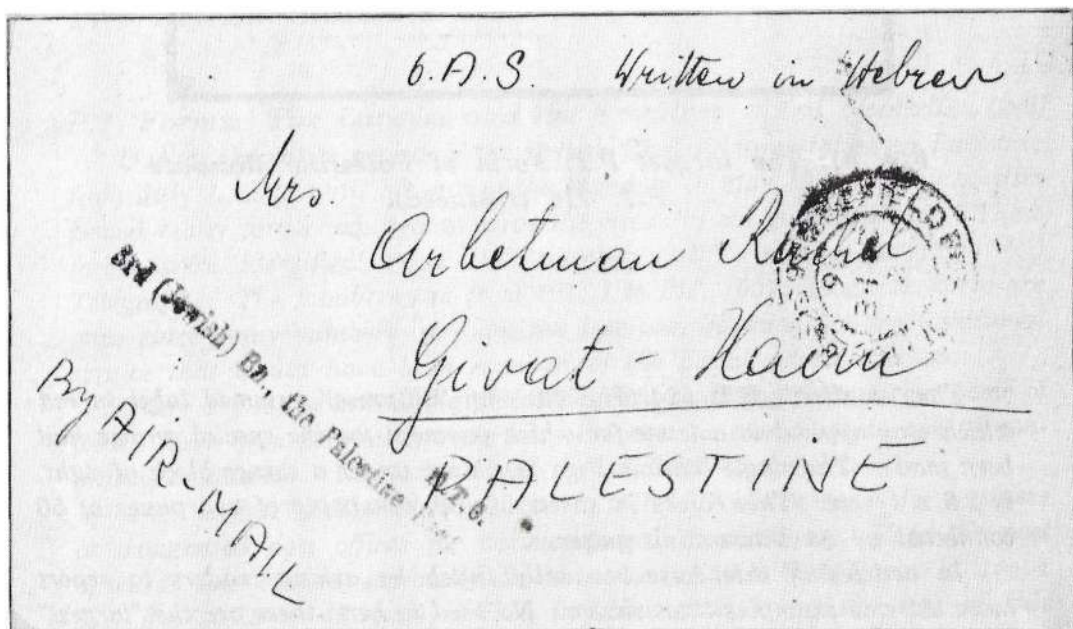 O.A.S Written in Hebrew
Mrs.
Arbetman Rachel
Givat Haim
PALESTINE
3rd (Jewish) Bn. the Palestine
By AIR MAIL
FIELD